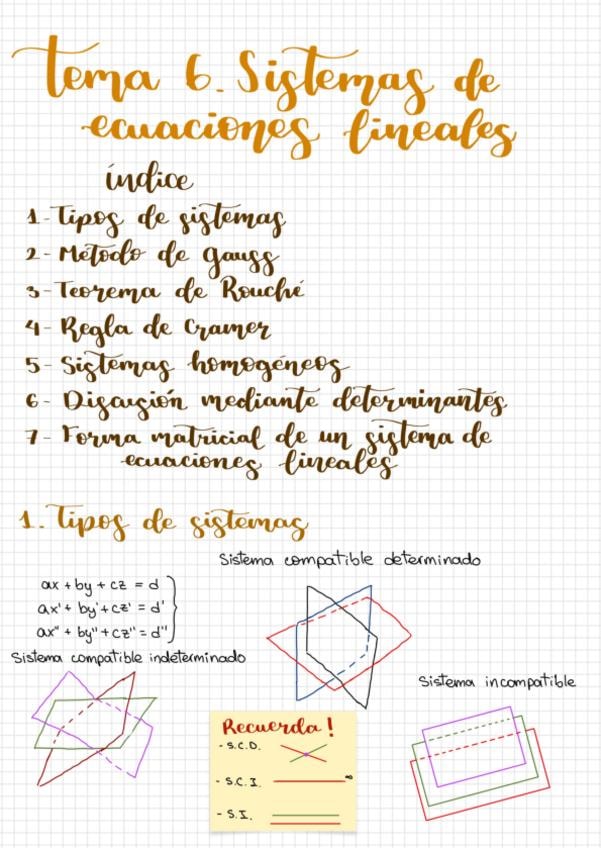 Tema 6. Sistemas de
ecuaciones lineales
índice
1- Tipos de sistemas
2- Método de Gauss
3- Teorema de Rouché
4- Regla de Cramer
5- Sistemas homogéneos
6- Discusión mediante determinantes
7- Forma matricial de un sistema de
ecuaciones lineales
1. Tipos de sistemas
Sistema compatible determinado
ax + by + cz = d
ax' + by' + cz' = d'
ax" + by" + cz" = d"
Sistema compatible indeterminado
Sistema incompatible
Recuerda!
- S.C.D.
- S.C.I. ∞
- S.I.